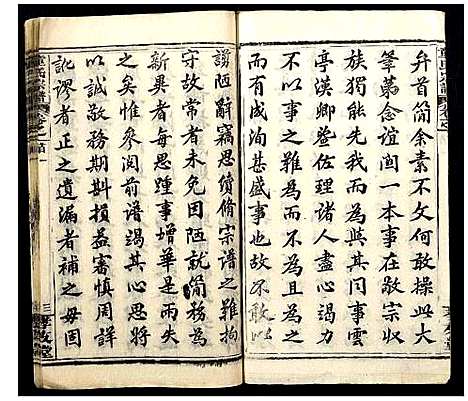 弁首簡余素不文何敢操此大
筆第念誼図一本事在敬宗収
族獨能先我而為與其同事
亭漢卿登佐理諸人盡心竭力
不以事之難而不為且不為之
而有成洵甚盛事也雖然不以
謭陋辭竊思續脩宗譜之難拘
守故常者未免因陋就簡務為
新異者每思踵事增華是兩失
之矣惟參閱前譜竭其心思將
以誠敬務期斟損益審慎周詳
訛謬者正之遺漏者補之毋固
童氏宗譜
卷之一
三
孝友堂